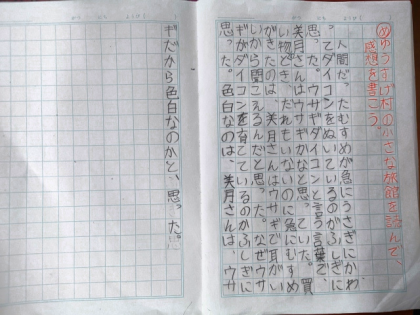 めゆうすげ村の小さな旅館を読んで、
感想を書こう。
人間だったむすめが急にうさぎにかわ
ってダイコンをぬいているのがふしぎに
思った。ウサギダイコンと言う言葉で、
美月さんはウサギかなと思っていた。買
い物のとき、だれもいないのに急にむすめ
がきたのは、美月さんはウサギで耳がい
いから聞こえるんだと思った。なぜウサ
ギがダイコンを育てているのかふしぎに
思った。色白なのは、美月さんは、ウサ
ギだから色白なのかと、思った。